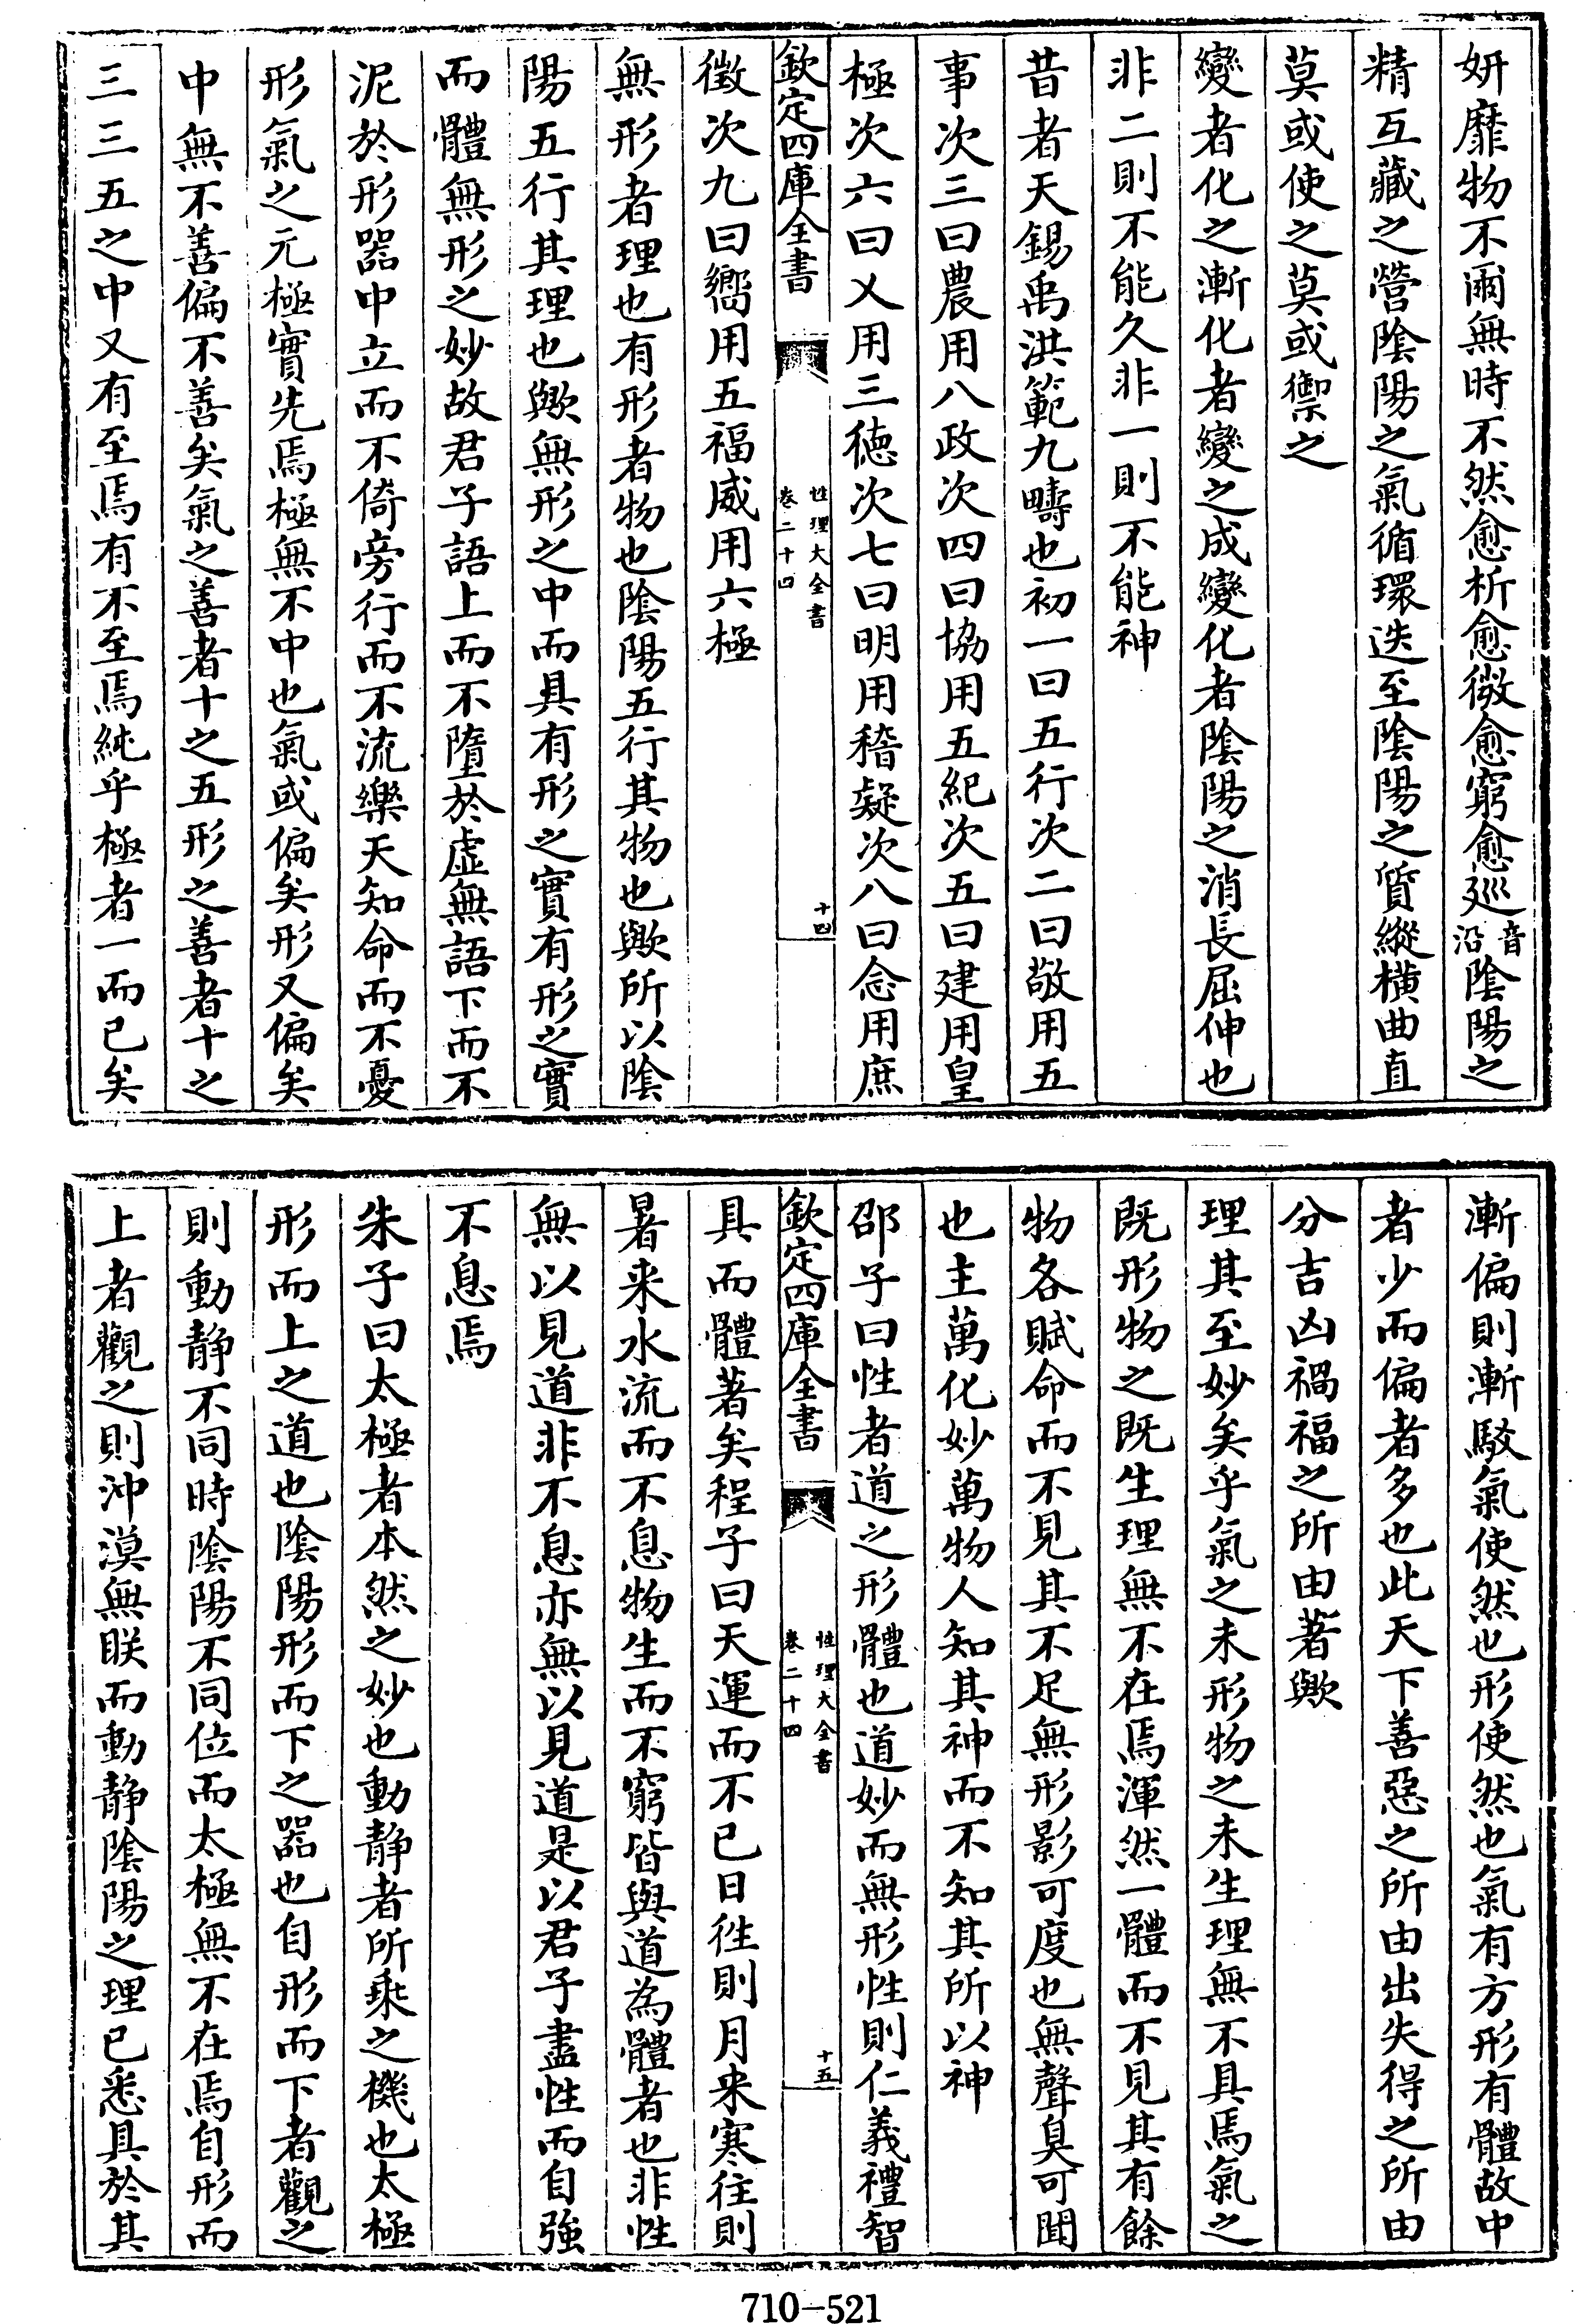 妍靡物不爾無時不然愈析愈微愈窮愈巡音沿陰陽之
精互藏之營陰陽之氣循環迭至陰陽之質縱橫曲直
莫或使之莫或禦之
變者化之漸化者變之成變化者陰陽之消長屈伸也
非二則不能久非一則不能神
昔者天錫禹洪範九疇也初一曰五行次二曰敬用五
事次三曰農用八政次四曰協用五紀次五曰建用皇
極次六曰乂用三徳次七曰明用稽疑次八曰念用庶
欽定四庫全書
性理大全書
卷二十四
十四
徵次九曰嚮用五福威用六極
無形者理也有形者物也陰陽五行其物也歟所以陰
陽五行其理也歟無形之中而具有形之實有形之實
而體無形之妙故君子語上而不墮於虛無語下而不
泥於形器中立而不倚旁行而不流樂天知命而不憂
形氣之元極實先焉極無不中也氣或偏矣形又偏矣
中無不善偏不善矣氣之善者十之五形之善者十之
三三五之中又有至焉有不至焉純乎極者一而已矣
漸偏則漸駁氣使然也形使然也氣有方形有體故中
者少而偏者多也此天下善惡之所由出失得之所由
分吉凶禍福之所由著歟
理其至妙矣乎氣之未形物之未生理無不具焉氣之
既形物之既生理無不在焉渾然一體而不見其有餘
物各賦命而不見其不足無形影可度也無聲臭可聞
也主萬化妙萬物人知其神而不知其所以神
邵子曰性者道之形體也道妙而無形性則仁義禮智
欽定四庫全書
性理大全書
卷二十四
十五
具而體著矣程子曰天運而不已日徃則月来寒往則
暑来水流而不息物生而不窮皆與道為體者也非性
無以見道非不息亦無以見道是以君子盡性而自強
不息焉
朱子曰太極者本然之妙也動静者所乗之機也太極
形而上之道也陰陽形而下之器也自形而下者觀之
則動静不同時陰陽不同位而太極無不在焉自形而
上者觀之則沖漠無眹而動静陰陽之理已悉具於其
710-521